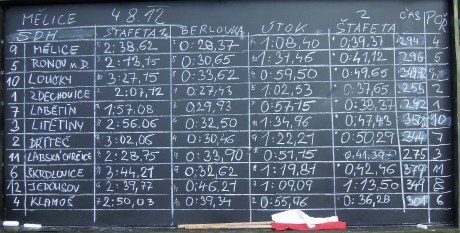 MĚLICE 4 8 12
SDH ŠTAFETA 1 BERLOVKA ÚTOK 2 ŠTAFETA ČAS POŘ
9 MĚLICE 2:38,62 0:28,37 1:08,40 0:39,37 294 4
5 RONOV n.D. 2:13,15 0:30,65 1:31,46 0:41,12 296 5
10 LOUČKY 3:27,15 0:33,62 0:59,50 0:49,65
1 ZDECHOVICE 2:07,12 0:27,43 1:02,53 0:37,65 255 2
7 LABĚTÍN 1:57,08 0:29,93 0:57,15 0:38,37 242 1
3 LITĚTINY 2:56,06 0:32,50 1:34,96 0:47,43 10
2 DŘÍTEČ 3:02,06 0:30,46 1:22,21 0:50,29 344 7
11 LABSKÁ CHRČICE 2:28,75 0:33,90 0:51,15 0:41,39 275 3
6 ŠKRDLOVICE 3:44,21 0:32,62 1:19,81 0:42,46 379 11
12 JEDOUSOV 2:39,77 0:46,21 1:09,09 1:13,50 349 8
4 KLAMOŠ 2:50,03 0:39,34 0:55,96 0:36,28 301 6